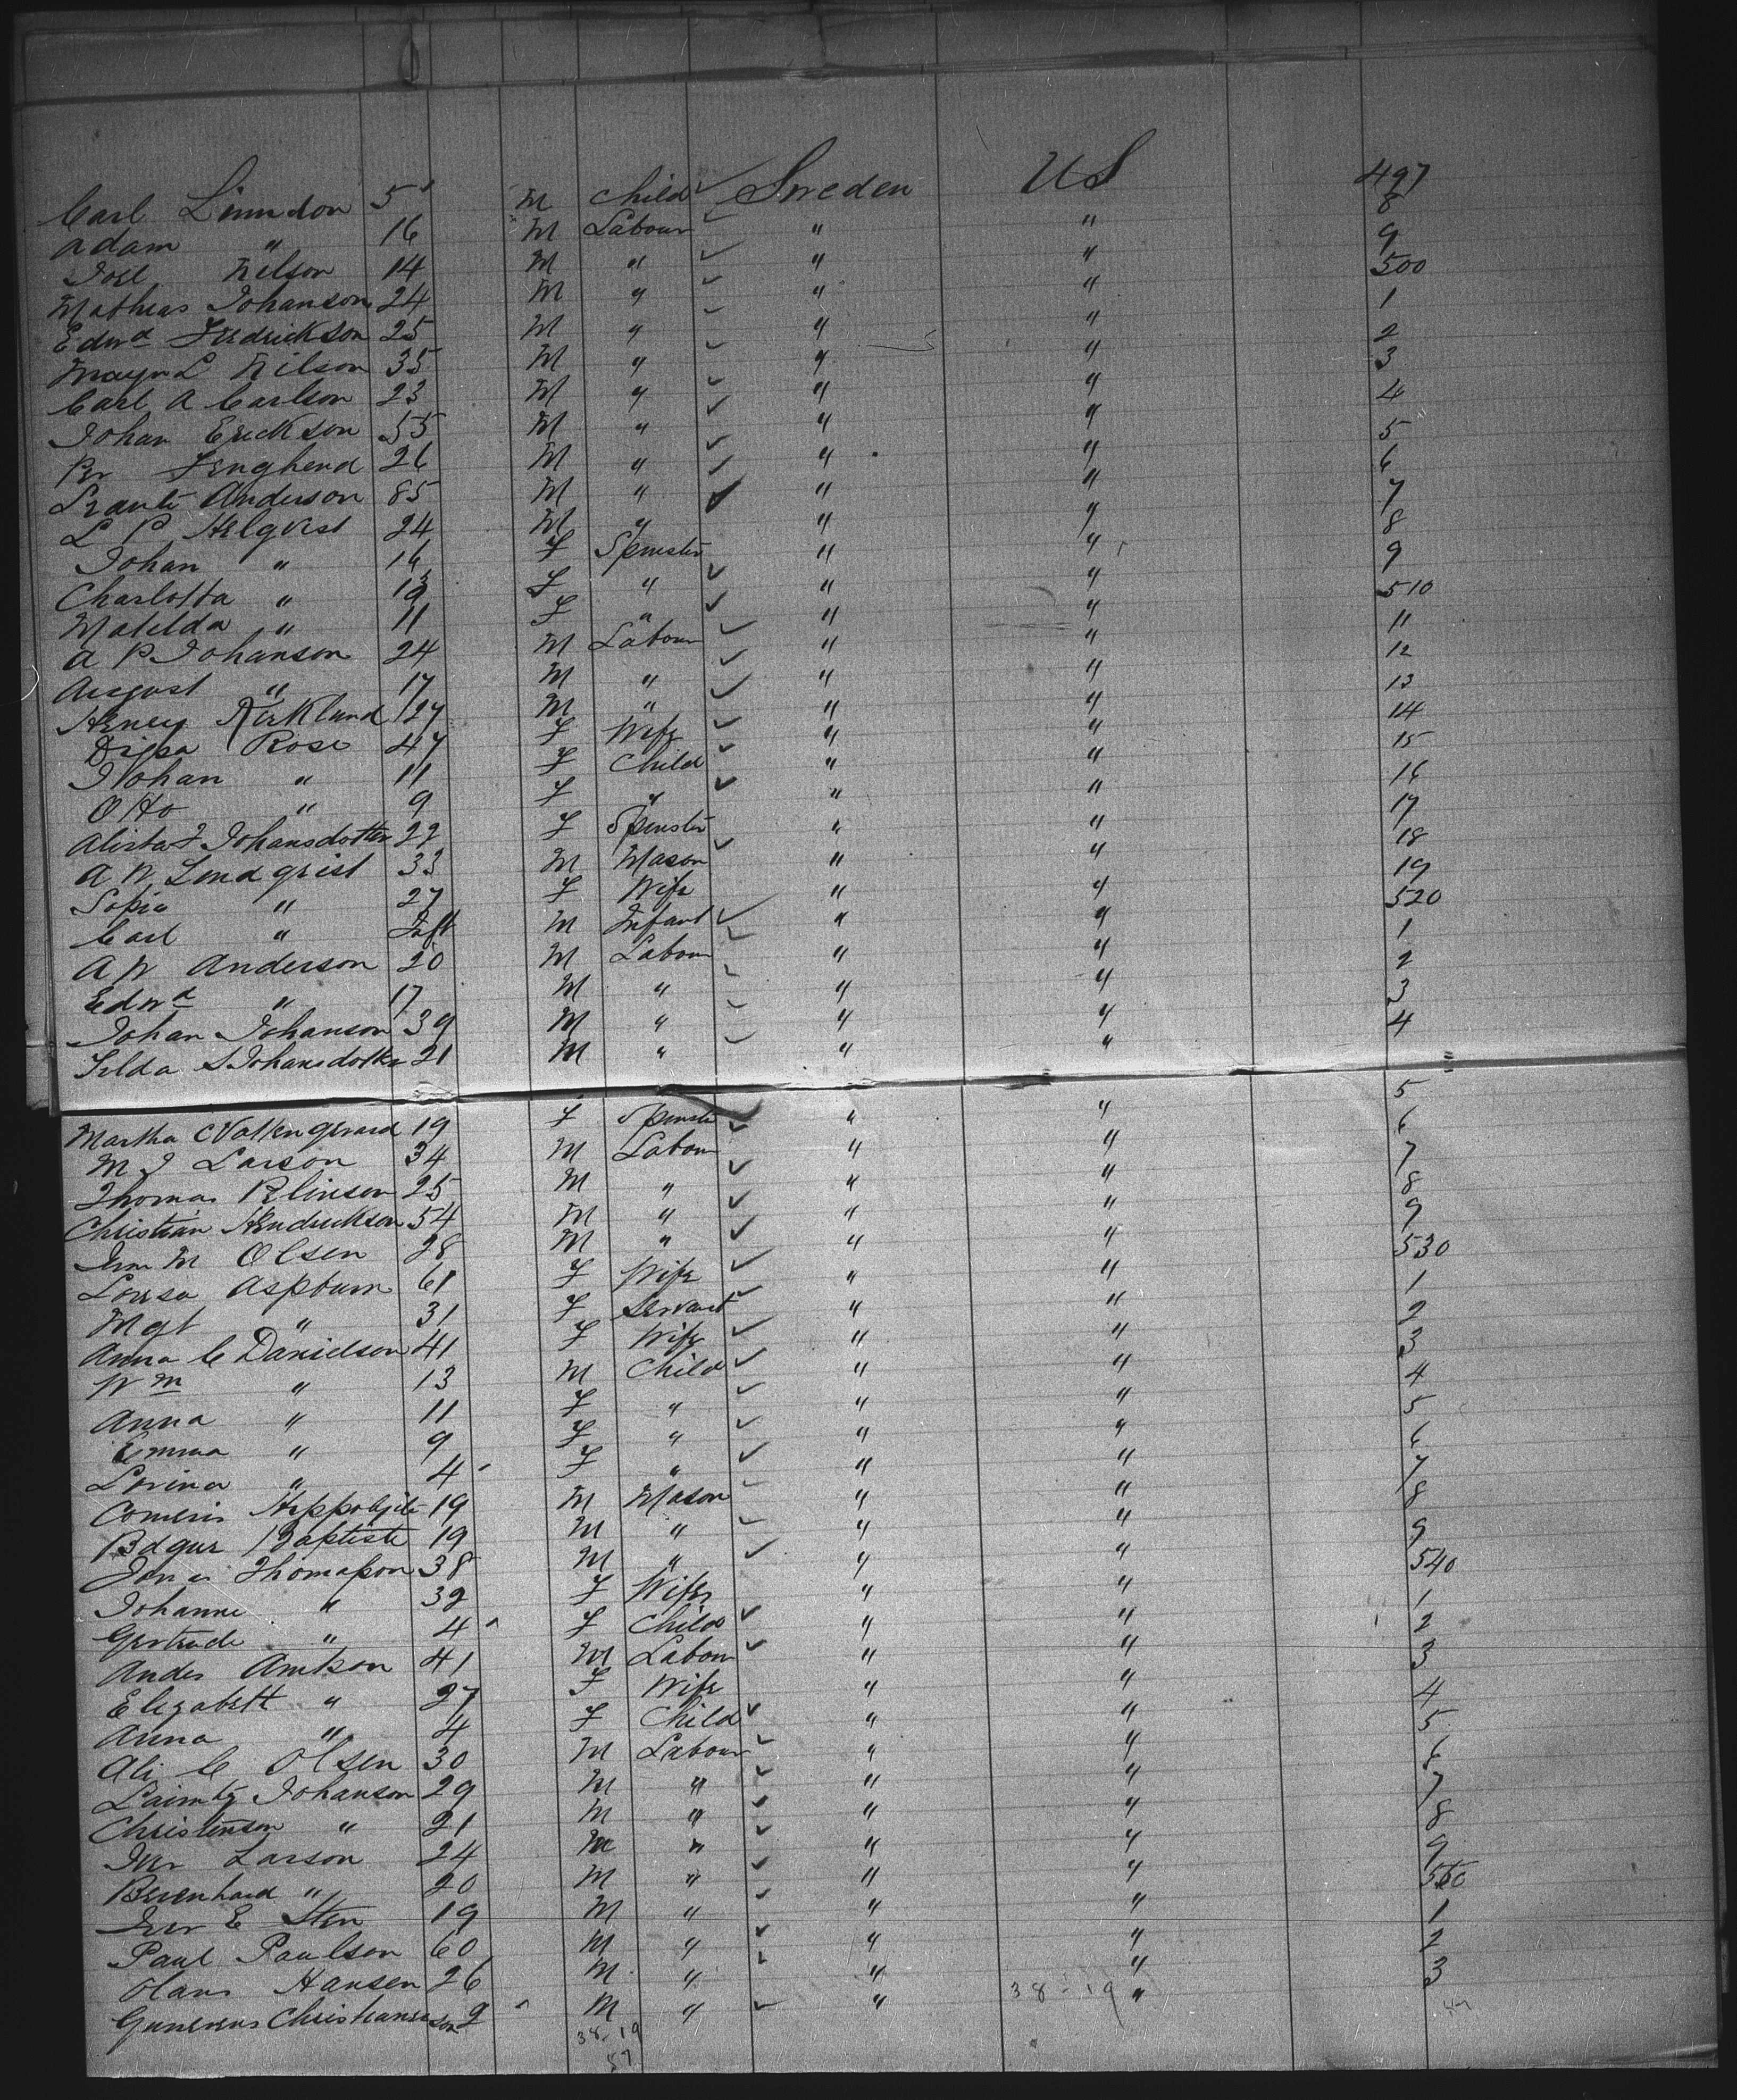 Carl Linndon 5 M Child Sweden US 497
Adam " 16 M Labour " " 8
Joel Nelson 14 M " " " 9
Mathias Johanson 24 M " " " 500
Edwd Fredrickson 25 M " " " 1
L Nilson 35 M " " " 2
Carl A Carlson 23 M " " " 3
Johan Erickson 55 M " " " 4
Per 26 M " " " 5
Anderson 85 M " " " 6
L P Helqvist 24 M " " " 7
Johan " 16 F Spinster " " 8
Charlotta " F " " " 9
Matilda " 11 F " " " 510
A P Johanson 24 M Labour " " 11
August " 17 M " " " 12
Henry Kirklund 27 M " " " 13
Rose 47 F Wife " " 14
Johan " 11 F Child " " 15
Otto " 9 F " " " 16
Johansdotter 22 F Spinster " " 17
A W Lindqrist 33 M Mason " " 18
Sopia " 27 F Wife " " 19
Carl " Inft M Infant " " 520
A W Anderson 20 M Labour " " 1
Edwd " 17 M " " " 2
Johan Johanson 39 M " " " 3
S Johansdotter 21 M " " " 4
Martha 19 F Spinster " " 5
M J Larson 34 M Labour " " 6
Thomas 25 M " " " 7
Christian Hendrickson 54 M " " " 8
M Olsen 28 M " " " 9
Lovisa Aspburn 61 F Wife " " 530
Mgt " 31 F Servant " " 1
Anna C Danielson 41 F Wife " " 2
Wm " 13 M Child " " 3
Anna " 11 F " " " 4
Emma " 9 F " " " 5
Lovina " 4 F " " " 6
Hippolyte 19 M Mason " " 7
Baptiste 19 M " " " 8
Thomason 38 M " " " 9
Johanne " 32 F Wife " " 540
Gertrude " 4 F Child " " 1
Andes Amtson 41 M Labour " " 2
Elizabett " 27 F Wife " " 3
Anna " 4 F Child " " 4
C Olsen 30 M Labour " " 5
Johanson 29 M " " " 6
Christenson " 21 M " " " 7
Iver Larson 24 M " " " 8
Berenhard " 20 M " " " 9
Iver E Sten 19 M " " " 550
Paul Paulson 60 M " " " 1
Hans Hansen 26 M " " " 2
Christianson 2 M " " 38-19 " 3
38-19
57